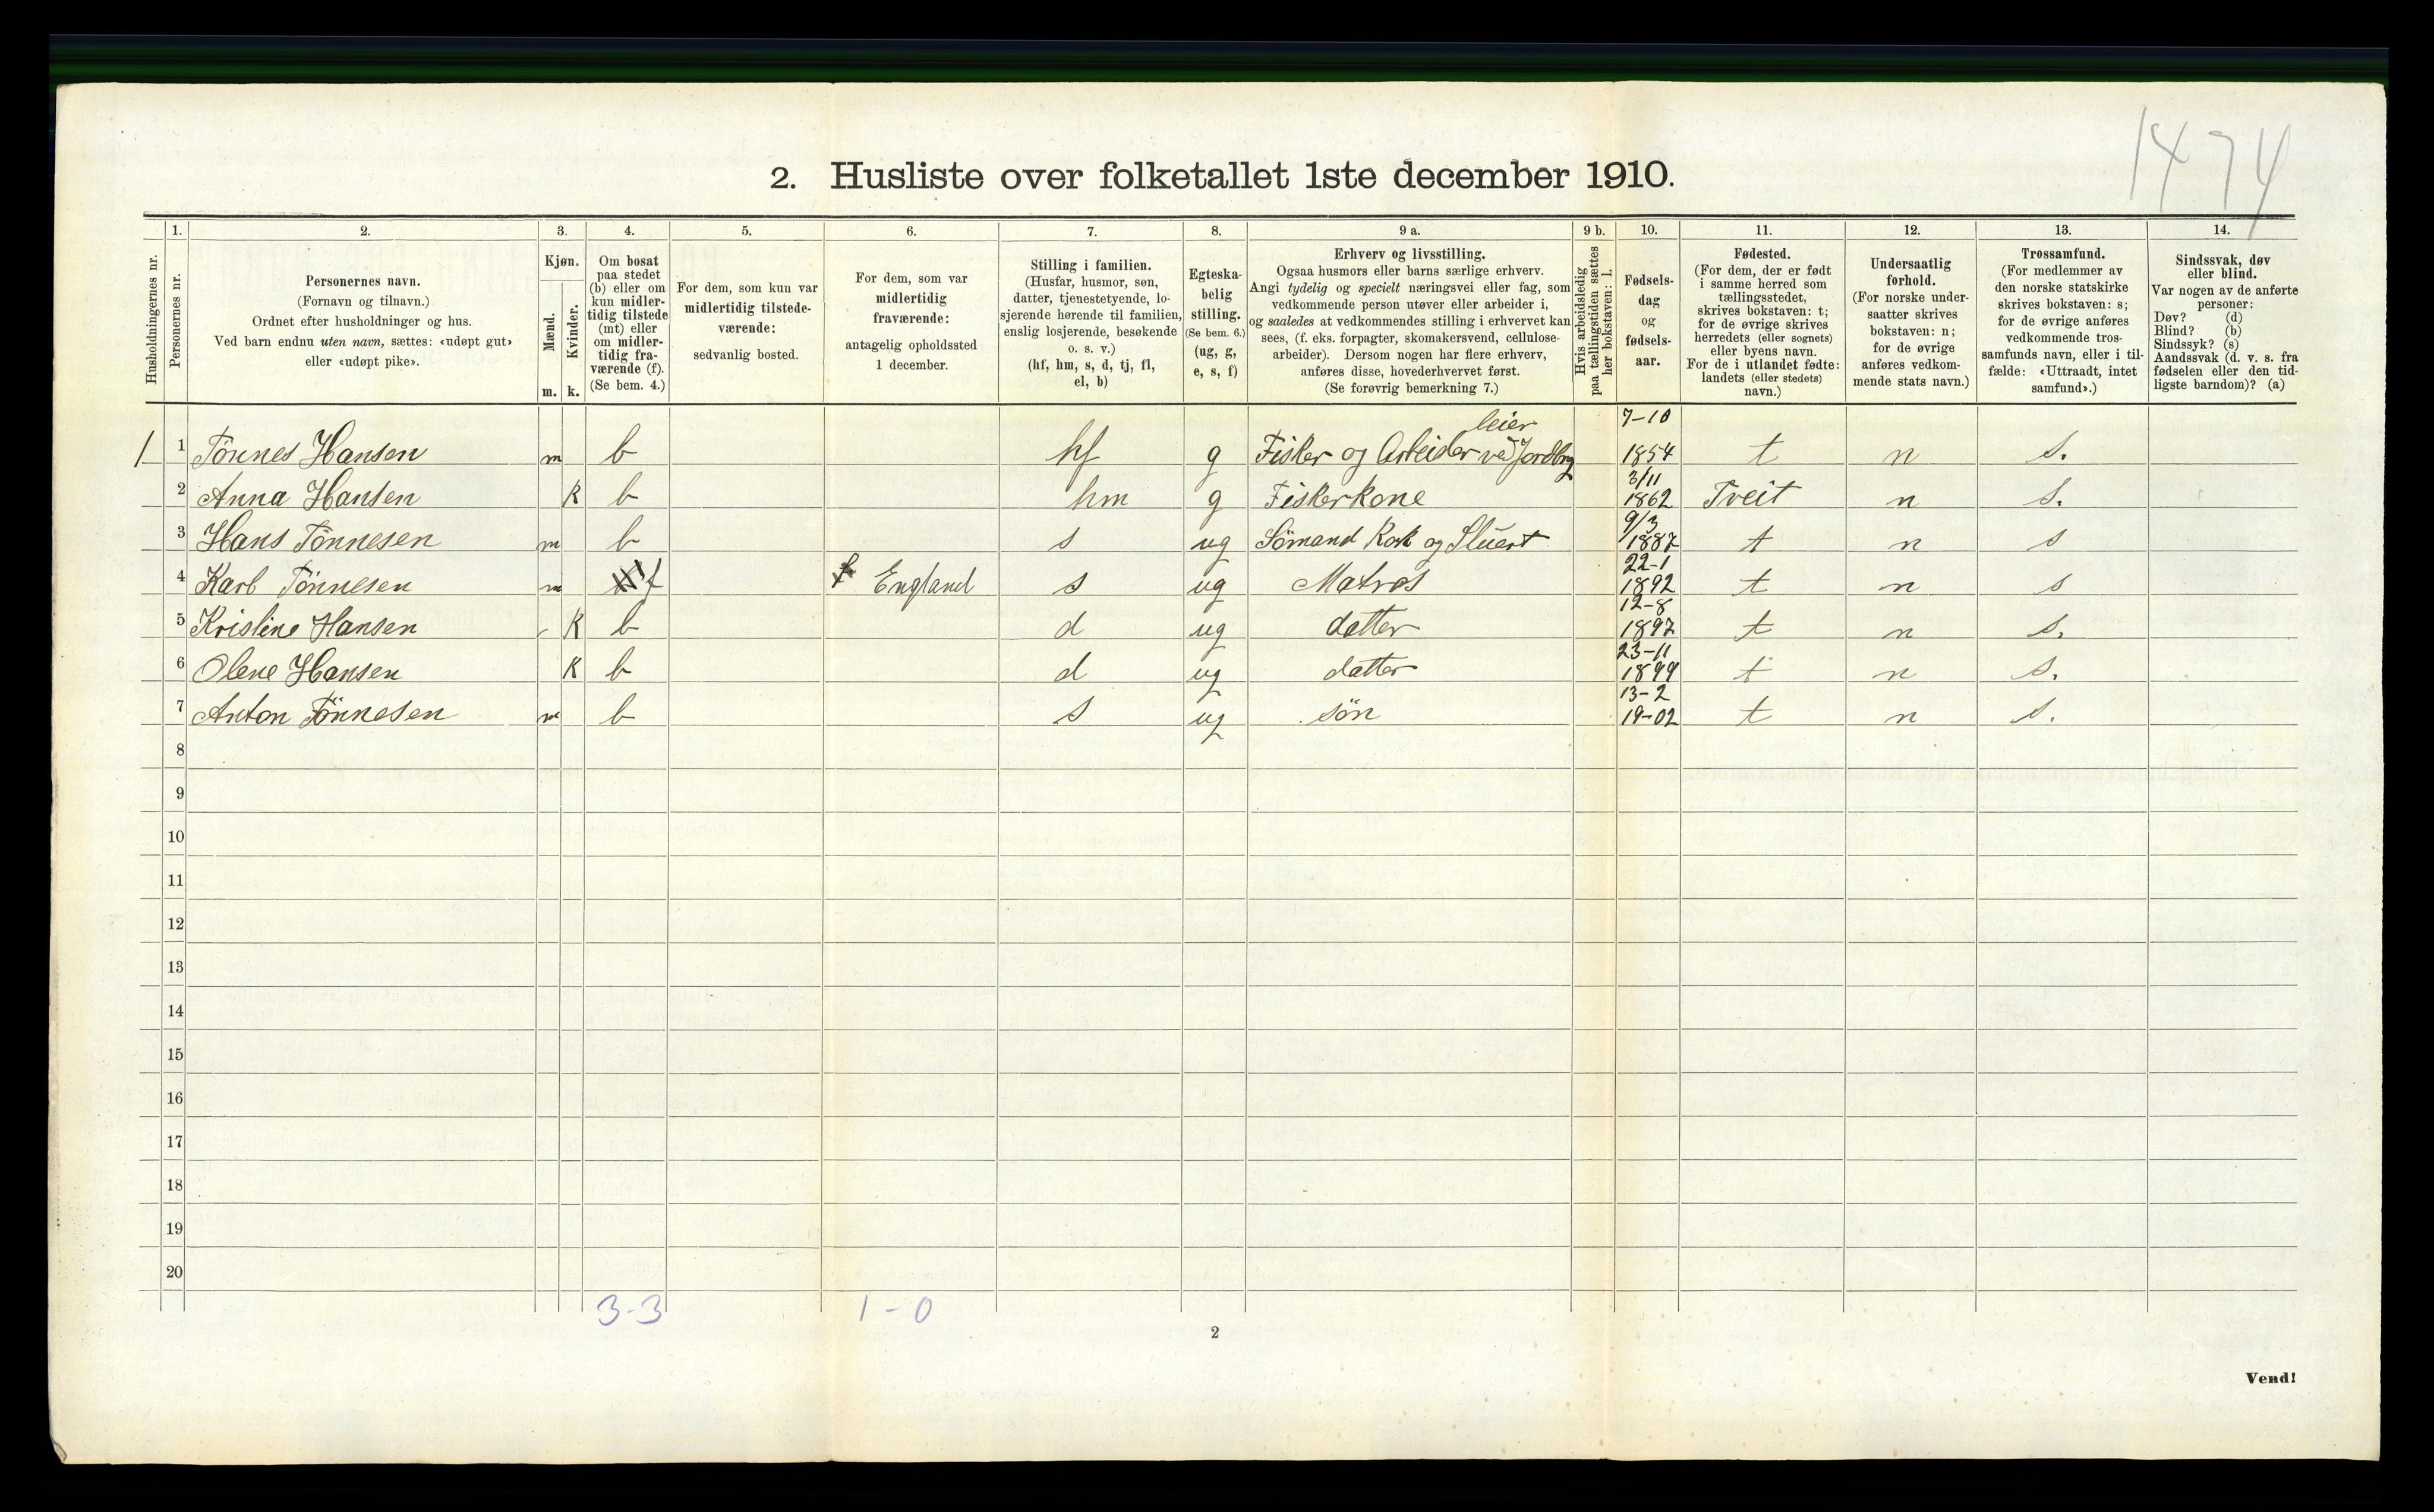 1474
2. Husliste over folketallet 1ste december 1910.
Husholdningernes nr.
1.
Personernes nr.
2.
Personernes navn.
(Fornavn og tilnavn.)
Ordnet efter husholdninger og hus.
Ved barn endnu uten navn, sættes: «udøpt gut»
eller «udøpt pike».
3.
Kjøn.
Mænd.
Kvinder.
m. k.
4.
Om bosat
paa stedet
(b) eller om
kun midler-
tidig tilstede
(mt) eller
om midler-
tidig fra-
værende (f).
(Se bem. 4.)
5.
For dem, som kun var
midlertidig tilstede-
værende:
sedvanlig bosted.
6.
For dem, som var
midlertidig
fraværende:
antagelig opholdssted
1 december.
7.
Stilling i familien.
(Husfar, husmor, søn,
datter, tjenestetyende, lo-
sjerende hørende til familien,
enslig losjerende, besøkende
o. s. v.)
(hf, hm, s, d, tj, fl,
el, b)
8.
Egteska-
belig
stilling.
(Se bem. 6.)
(ug, g,
e, s, f)
9 a.
Erhverv og livsstilling.
Ogsaa husmors eller barns særlige erhverv.
Angi tydelig og specielt næringsvei eller fag, som
vedkommende person utøver eller arbeider i,
og saaledes at vedkommendes stilling i erhvervet kan
sees, (f. eks. forpagter, skomakersvend, cellulose-
arbeider). Dersom nogen har flere erhverv,
anføres disse, hovederhvervet først.
(Se forøvrig bemerkning 7.)
9 b.
Hvis arbeidsledig
paa tællingstiden sættes
her bokstaven: l.
10.
Fødsels-
dag
og
fødsels-
aar.
11.
Fødested.
(For dem, der er født
i samme herred som
tællingsstedet,
skrives bokstaven: t;
for de øvrige skrives
herredets (eller sognets)
eller byens navn.
For de i utlandet fødte:
landets (eller stedets)
navn.)
12.
Undersaatlig
forhold.
(For norske under-
saatter skrives
bokstaven: n;
for de øvrige
anføres vedkom-
mende stats navn.)
13.
Trossamfund.
(For medlemmer av
den norske statskirke
skrives bokstaven: s;
for de øvrige anføres
vedkommende tros-
samfunds navn, eller i til-
fælde: «Uttraadt, intet
samfund».)
14.
Sindssvak, døv
eller blind.
Var nogen av de anførte
personer:
Døv? (d)
Blind? (b)
Sindssyk? (s)
Aandssvak (d. v. s. fra
fødselen eller den tid-
ligste barndom)? (a)
leier 7-10
1 1 Tönnes Hansen m b hf g Fisker og Arbeider ved Jordbrg 1854 t n s.
3/11
2 Anna Hansen K b hm g Fiskerkone 1862 Tveit n s.
9/3
3 Hans Tönnesen m b s ug Sömand Kok og Stuert 1887 t n s
22-1
4 Karl Tönnesen m f England s ug Matros 1892 t n s
12-8
5 Kristine Hansen K b d ug datter 1897 t n s.
23-11
6 Olene Hansen K b d ug datter 1899 t n s.
13-2
7 Anton Tönnesen m b s ug sön 19-02 t n s.
8
9
10
11
12
13
14
15
16
17
18
19
20
3-3 1-0
2
Vend!